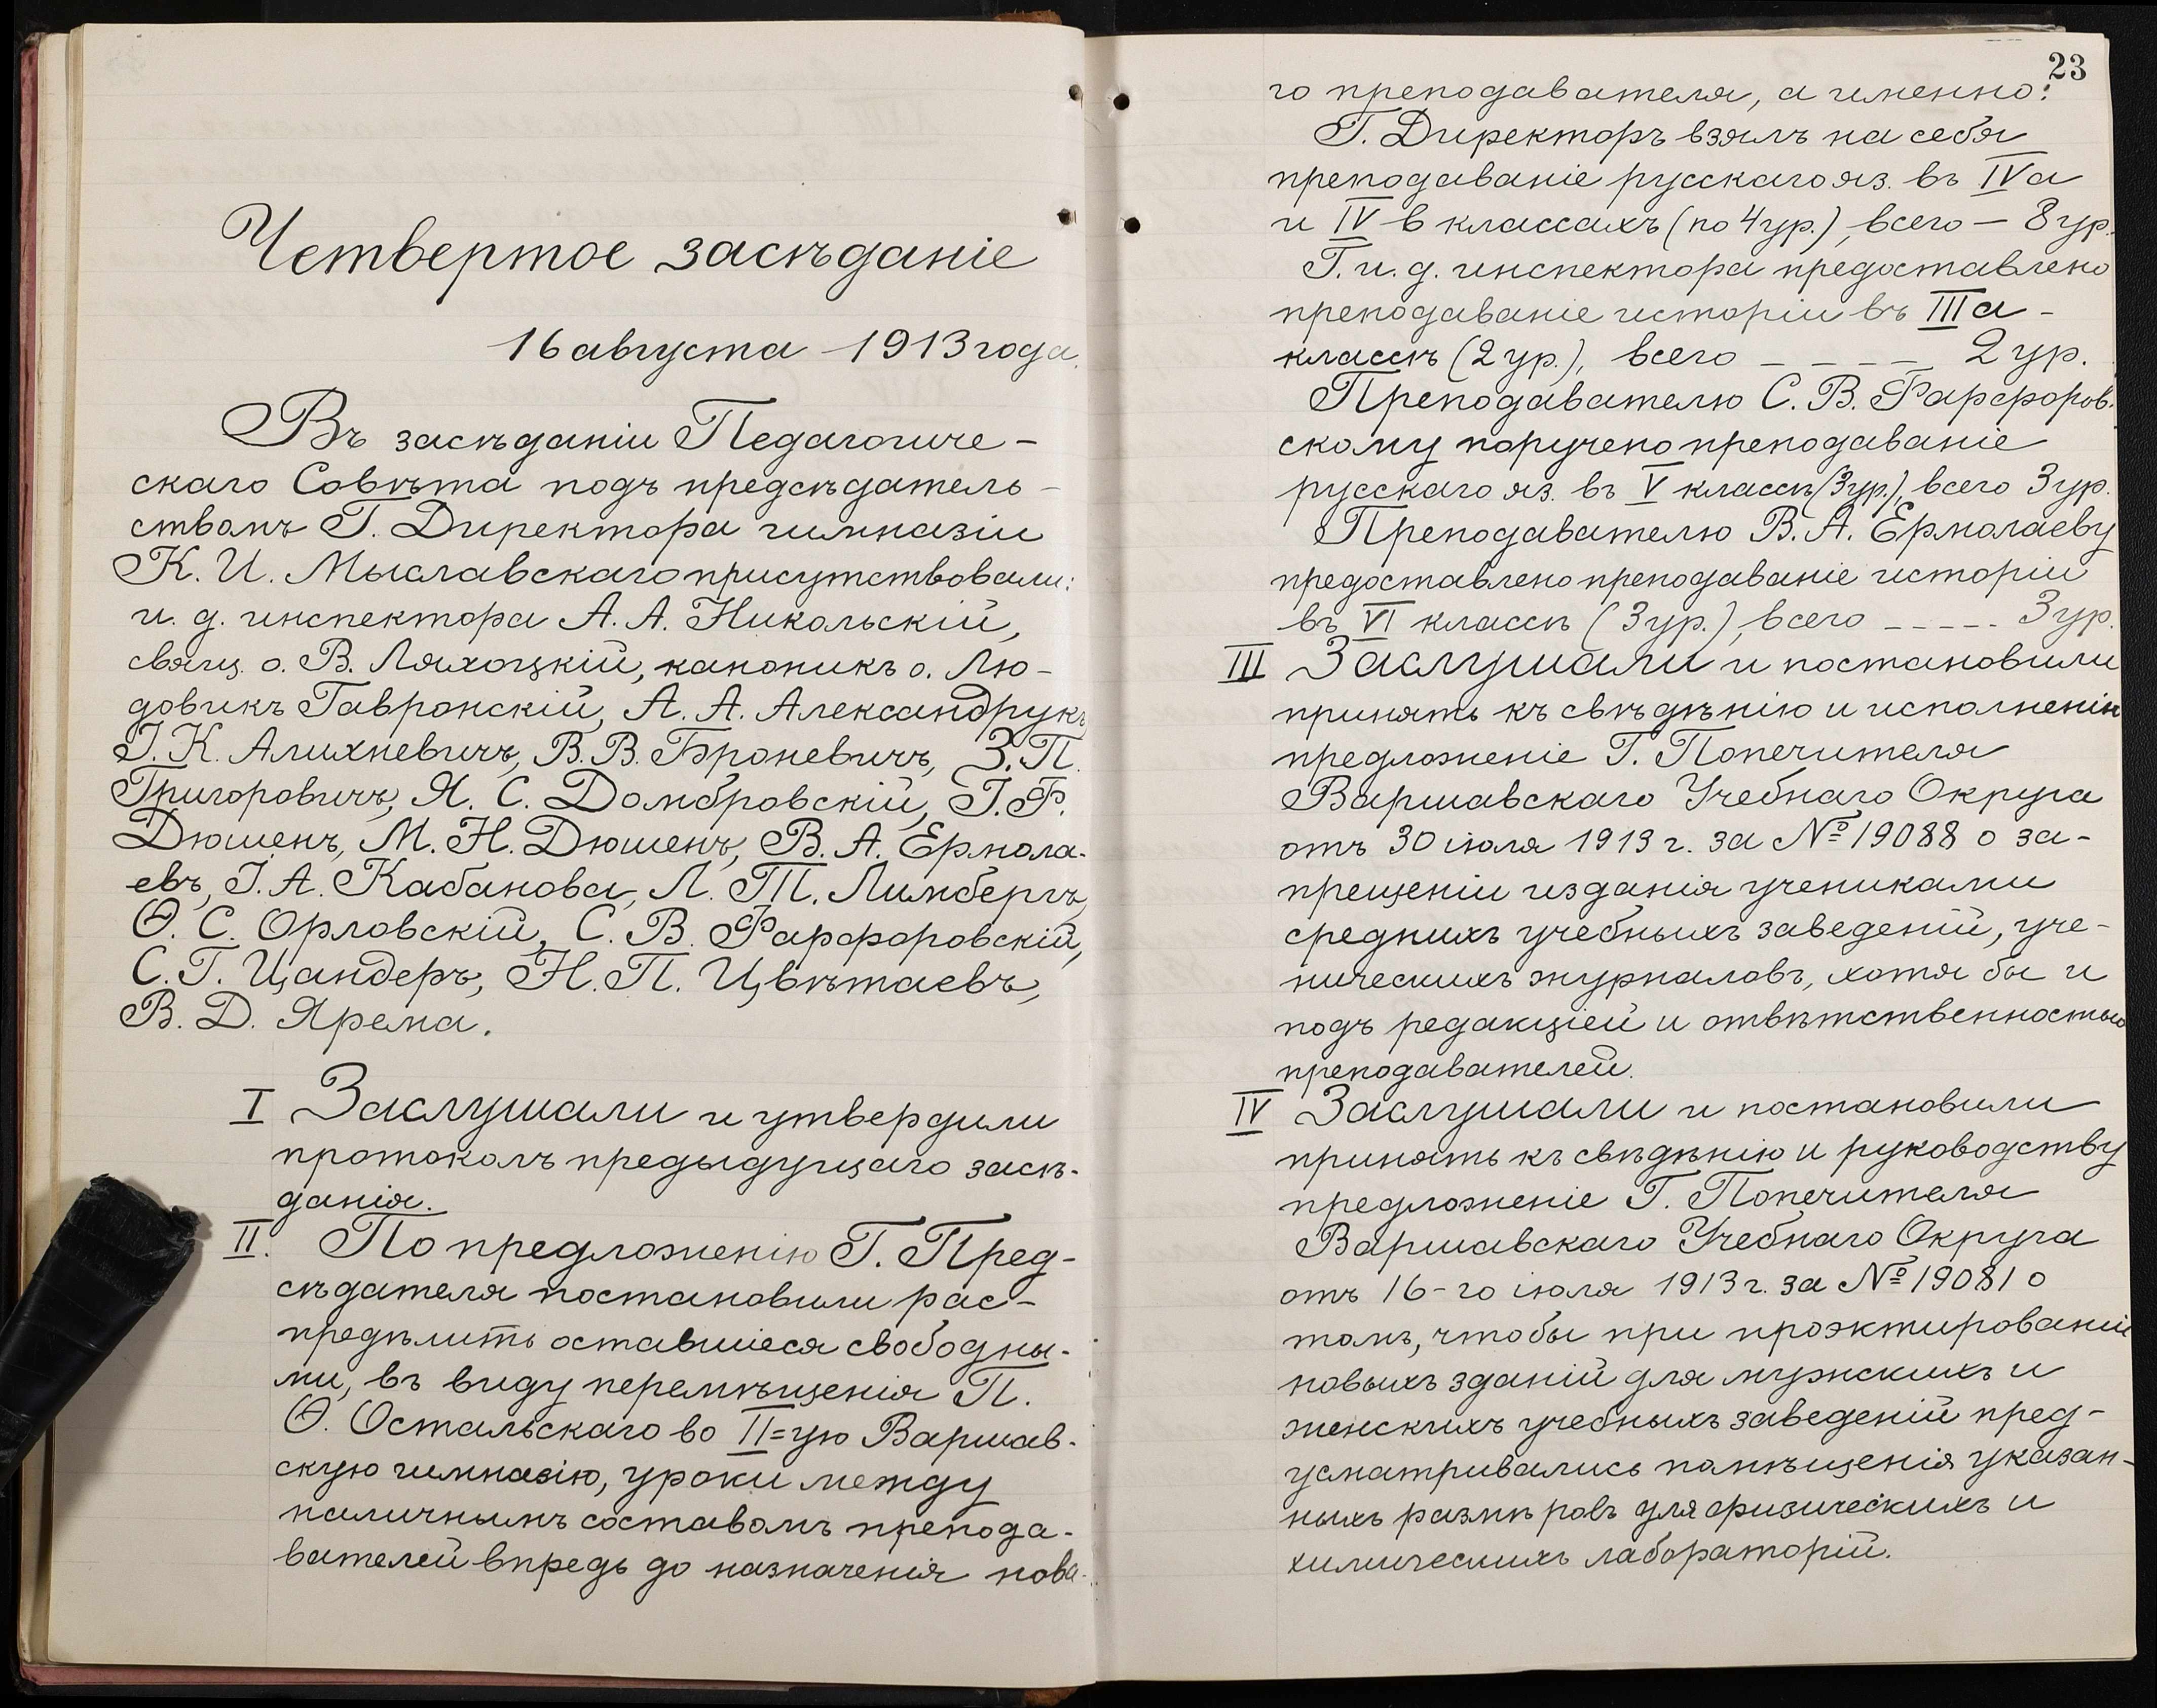 Четвертое засѣданіе
16 августа 1913 года.
Въ засѣданіи Педагогиче-
скаго Совѣта подъ предсѣдатель-
ствомъ Г. Директора гимназіи
К. И. Мыславскаго присутствовали:
и. д. инспектора А. А. Никольскій,
свящ. о. В. Ляхоцкій, каноникъ о. Лю-
довикъ Гавронскій, А. А. Александрукъ,
І. К. Алихневичъ, В. В. Броневичъ, З. П.
Григоровичъ, Я. С. Домбровскій, Г. Ф.
Дюшенъ, М. Н. Дюшенъ, В. А. Ермола-
евъ, І. А. Кабанова, Л. Т. Лимбергъ,
Ѳ. С. Орловскій, С. В. Фарфоровскій,
С. Г. Цандеръ, Н. П. Цвѣтаевъ,
В. Д. Ярема.
I Заслушали и утвердили
протоколъ предыдущаго засѣ-
данія.
II. По предложенію Г. Пред-
сѣдателя постановили рас-
предѣлить оставшіеся свободны-
ми, въ виду перемѣщенія П.
Ѳ. Остальскаго во II=ую Варшав-
скую гимназію, уроки между
наличнымъ составомъ препода-
вателей впредь до назначенія нова-
23
го преподавателя, а именно:
Г. Директоръ взялъ на себя
преподаваніе русскаго яз. въ IVа
и IV в классахъ (по 4 ур.), всего — 8 ур.
Г. и. д. инспектора предоставлено
преподаваніе исторіи въ IIIа -
классѣ (2 ур.), всего _ _ _ _ 2 ур.
Преподавателю С. В. Фарфоров-
скому поручено преподаваніе
русскаго яз. въ V классѣ (3 ур.), всего 3 ур.
Преподавателю В. А. Ермолаеву
предоставлено преподаваніе исторіи
въ VI классѣ (3 ур.), всего _ _ _ _ _ 3 ур.
III Заслушали и постановили
принять къ свѣдѣнію и исполненію
предложеніе Г. Попечителя
Варшавскаго Учебнаго Округа
отъ 30 іюля 1913 г. за № 19088 о за-
прещеніи изданія учениками
среднихъ учебныхъ заведеній, уче-
ническихъ журналовъ, хотя бы и
подъ редакціей и отвѣтственностью
преподавателей.
IV Заслушали и постановили
принять къ свѣдѣнію и руководству
предложеніе Г. Попечителя
Варшавскаго Учебнаго Округа
отъ 16-го іюля 1913 г. за № 19081 о
томъ, чтобы при проэктированіи
новыхъ зданій для мужскихъ и
женскихъ учебныхъ заведеній пред-
усматривались помѣщенія указан-
ныхъ размѣровъ для физическихъ и
химическихъ лабораторій.